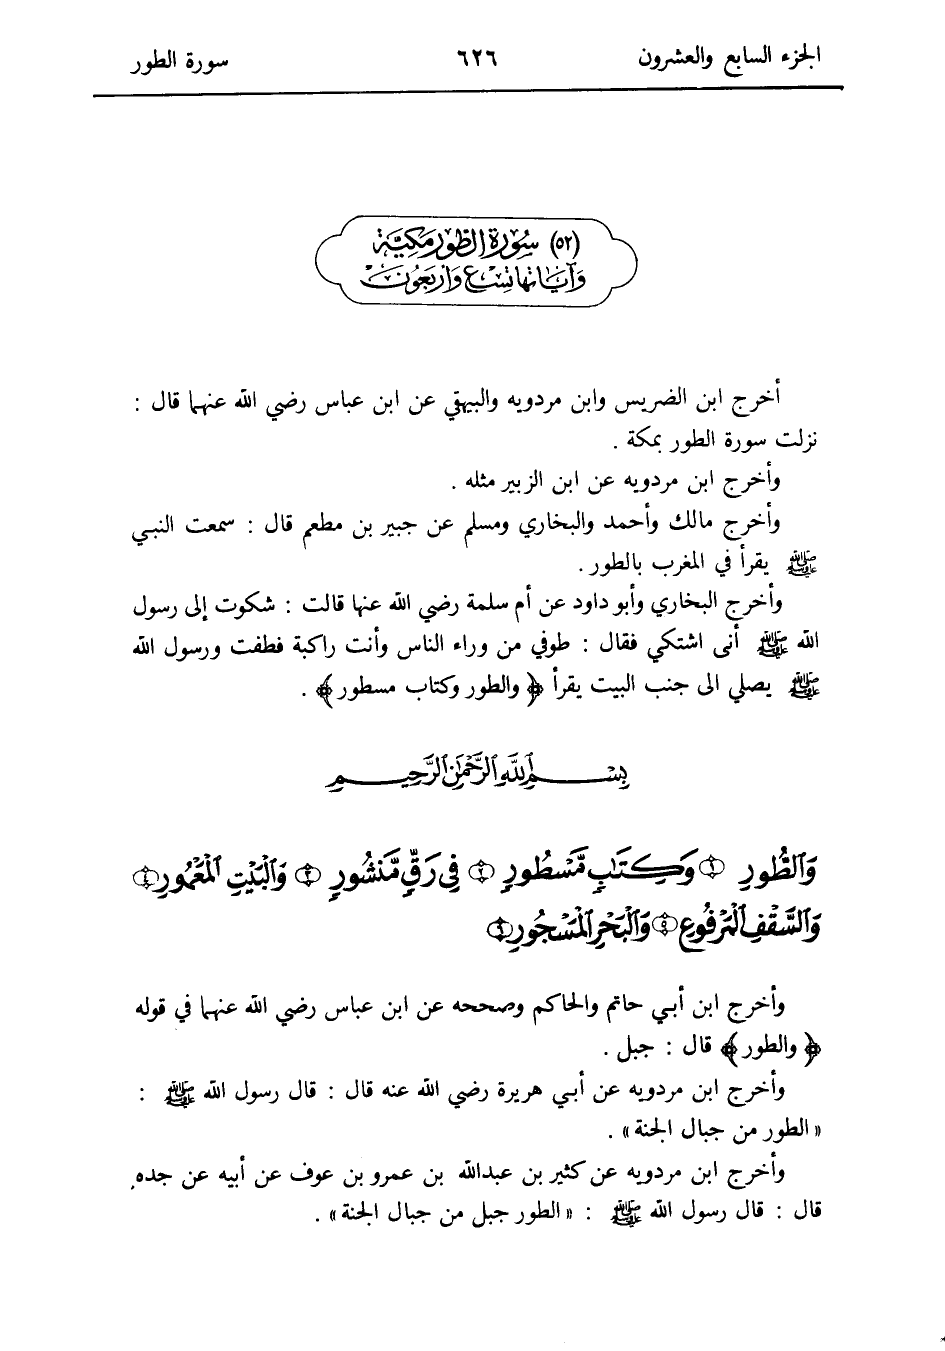 الجزء السابع والعشرون ٦٢٦ سورة الطور
(٥٢) سُورَة الطُّور مَكيَّة
وَآيَاتهَا تسْع وَأرْبَعُونْ
أخرج ابن الضريس وابن مردويه والبيهقي عن ابن عباس رضي الله عنهما قال :
نزلت سورة الطور بمكة .
وأخرج ابن مردويه عن ابن الزبير مثله .
وأخرج مالك وأحمد والبخاري ومسلم عن جبير بن مطعم قال : سمعت النبي
ﷺ يقرأ في المغرب بالطور .
وأخرج البخاري وأبو داود عن أم سلمة رضي الله عنها قالت : شكوت إلى رسول
الله ﷺ أنى اشتكي فقال : طوفي من وراء الناس وأنت راكبة فطفت ورسول الله
ﷺ يصلي الى جنب البيت يقرأ ﴿ والطور وكتاب مسطور ﴾ .
بِسْمِ اللَّهِ الرَّحْمَٰنِ الرَّحِيمِ
وَالطُّورِ ١ وَكِتَابٍ مَّسْطُورٍ ٢ فِي رَقٍّ مَّنْشُورٍ ٣ وَالْبَيْتِ الْمَعْمُورِ ٤
وَالسَّقْفِ الْمَرْفُوعِ ٥ وَالْبَحْرِ الْمَسْجُورِ ٦
وأخرج ابن أبي حاتم والحاكم وصححه عن ابن عباس رضي الله عنهما في قوله
﴿ والطور ﴾ قال : جبل .
وأخرج ابن مردويه عن أبي هريرة رضي الله عنه قال : قال رسول الله ﷺ :
« الطور من جبال الجنة » .
وأخرج ابن مردويه عن كثير بن عبدالله بن عمرو بن عوف عن أبيه عن جده
قال : قال رسول الله ﷺ : « الطور جبل من جبال الجنة » .